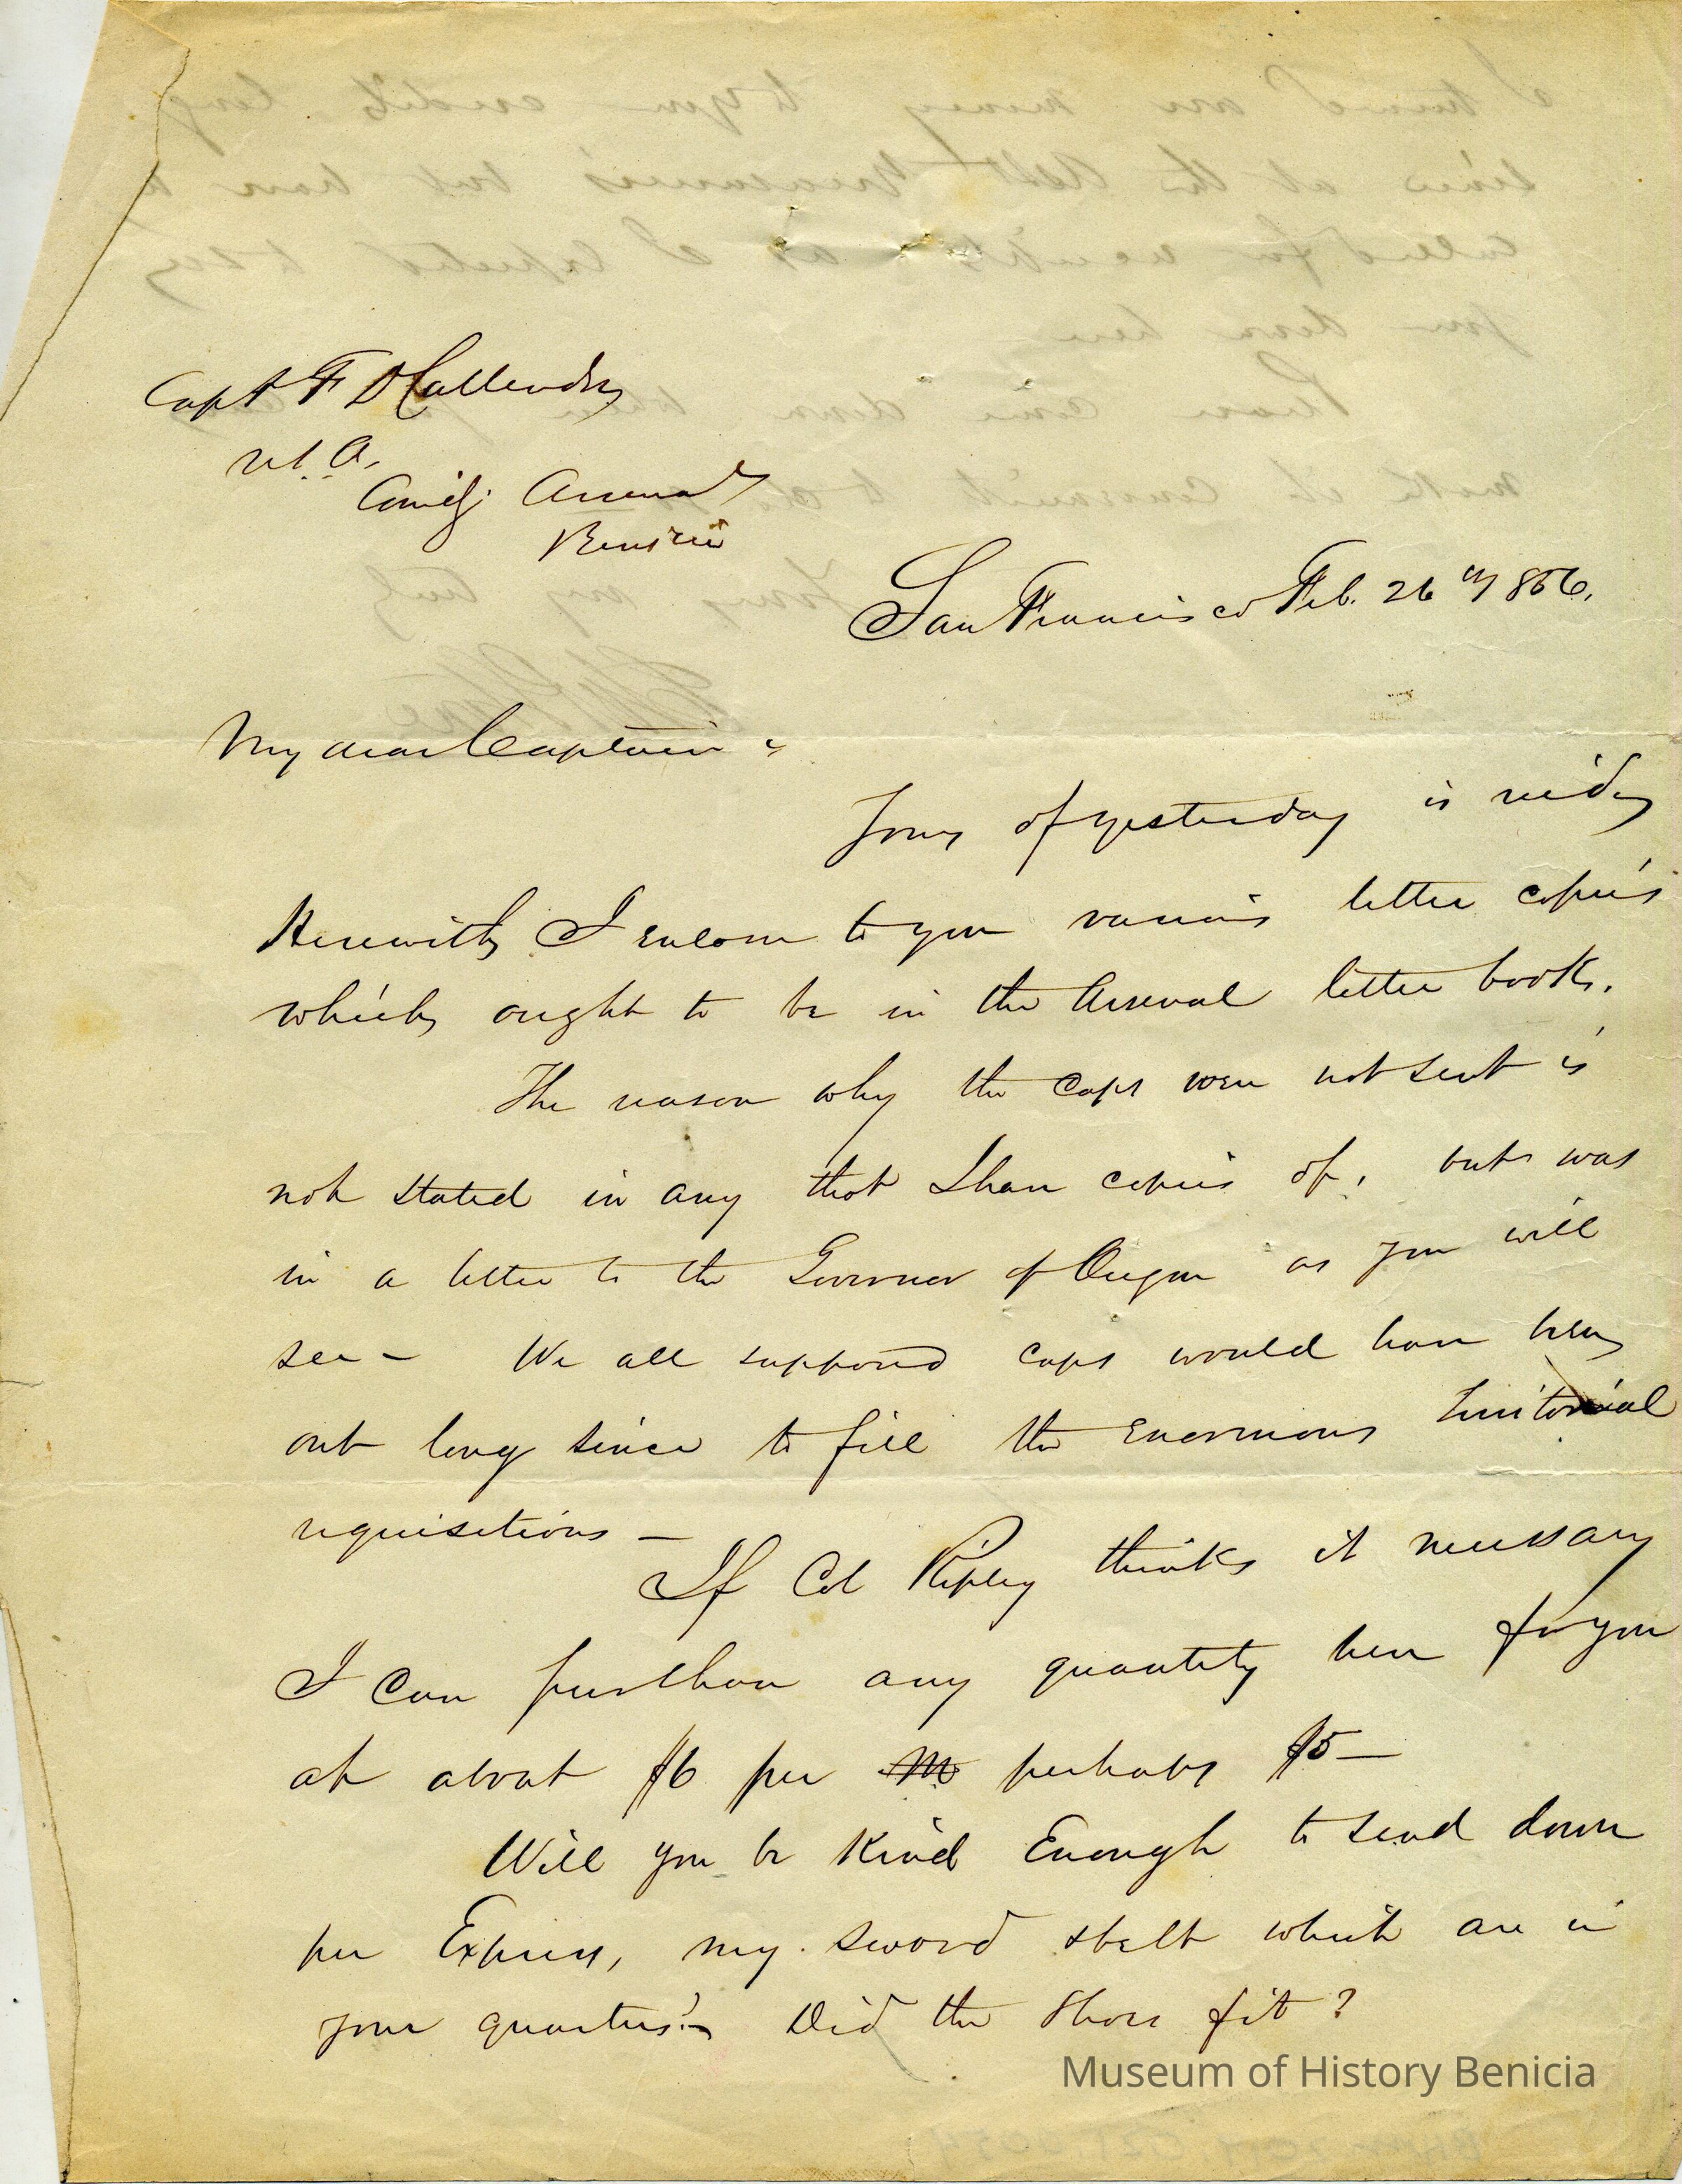 Capt F D Callender
U.S.A.
Comdg Arsenal
Benicia
San Francisco Feb. 26th 1856.
My dear Captain,
Yours of yesterday is recd.
Herewith I enclose to you various letter copies
which ought to be in the Arsenal letter book.
The reason why the caps were not sent is
not stated in any that I have copies of, but was
in a letter to the Governor of Oregon as you will
see — We all supposed caps would have been
out long since to fill the enormous territorial
requisitions —
If Col Ripley thinks it necessary
I can purchase any quantity here for you
at about $6 per M perhaps $5 —
Will you be kind Enough to send down
per Express, my sword & belt which are in
your quarters? — Did the Shoes fit?
Museum of History Benicia